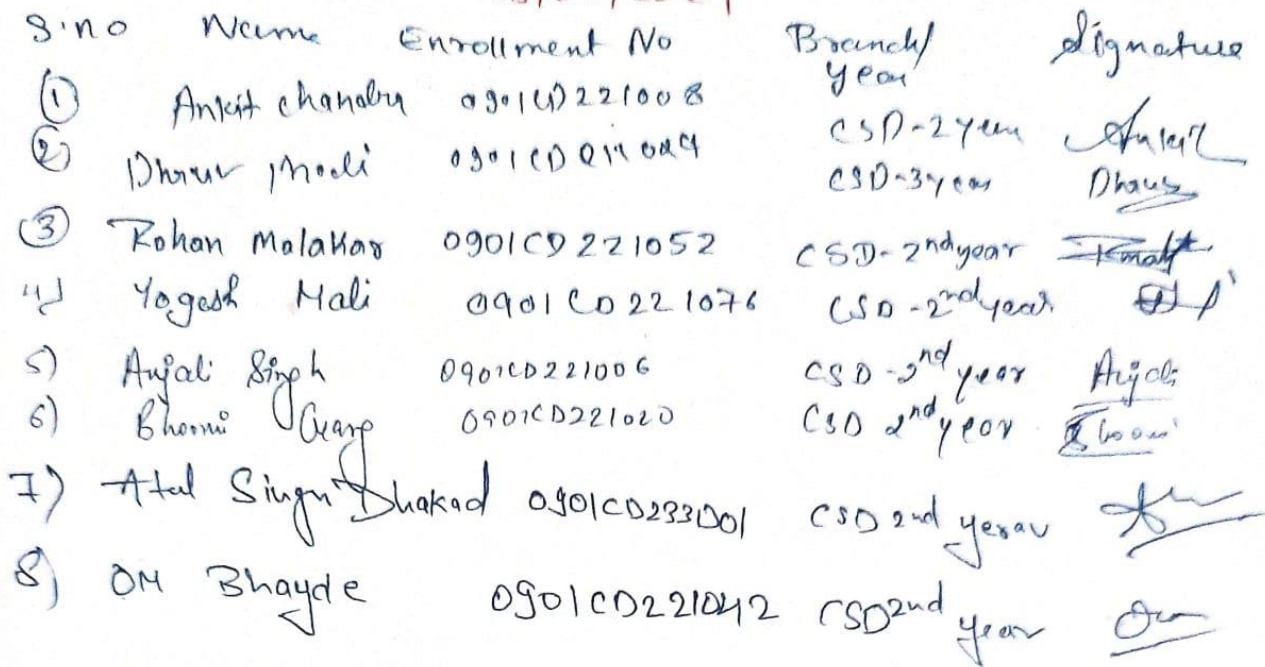 S.no Name Enrollment No Branch/ Signature
year
① Ankit chandra 0901CD221008 CSD-2 year Ankit
② Dhruv 0901CD CSD-3 year Dhruv
③ Rohan Malakar 0901CD221052 CSD-2nd year
4) Yogesh Mali 0901CD221076 CSD-2nd year
5) Anjali Singh 0901CD221006 CSD-2nd year Anjali
6) Bhoomi Garg 0901CD221020 CSD 2nd year Bhoomi
7) Atul Singh Dhakad 0901CD233D01 CSD 2nd yerav
8) OM Bhayde 0901CD221042 CSD 2nd year Om